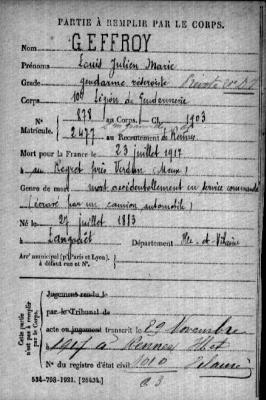 PARTIE À REMPLIR PAR LE CORPS.
Nom GEFFROY
Prénoms Louis Julien Marie
Grade gendarme réserviste
Corps 10e Légion de Gendarmerie
N° 878 au Corps. — Cl. 1903
Matricule. 2477 au Recrutement de Rennes
Mort pour la France le 23 juillet 1917
à au Regret près Verdun (Meuse)
Genre de mort mort accidentellement en service commandé
(écrasé par un camion automobile)
Né le 27 juillet 1883
à Département Ille-et-Vilaine
Arrt municipal (pr Paris et Lyon),
à défaut rue et N°.
Cette partie n'est pas à remplir par le Corps.
Jugement rendu le
par le Tribunal de
acte ou jugement transcrit le 29 Novembre
1917 à Rennes
N° du registre d'état civil 1010
534-708-1921. [26434.]